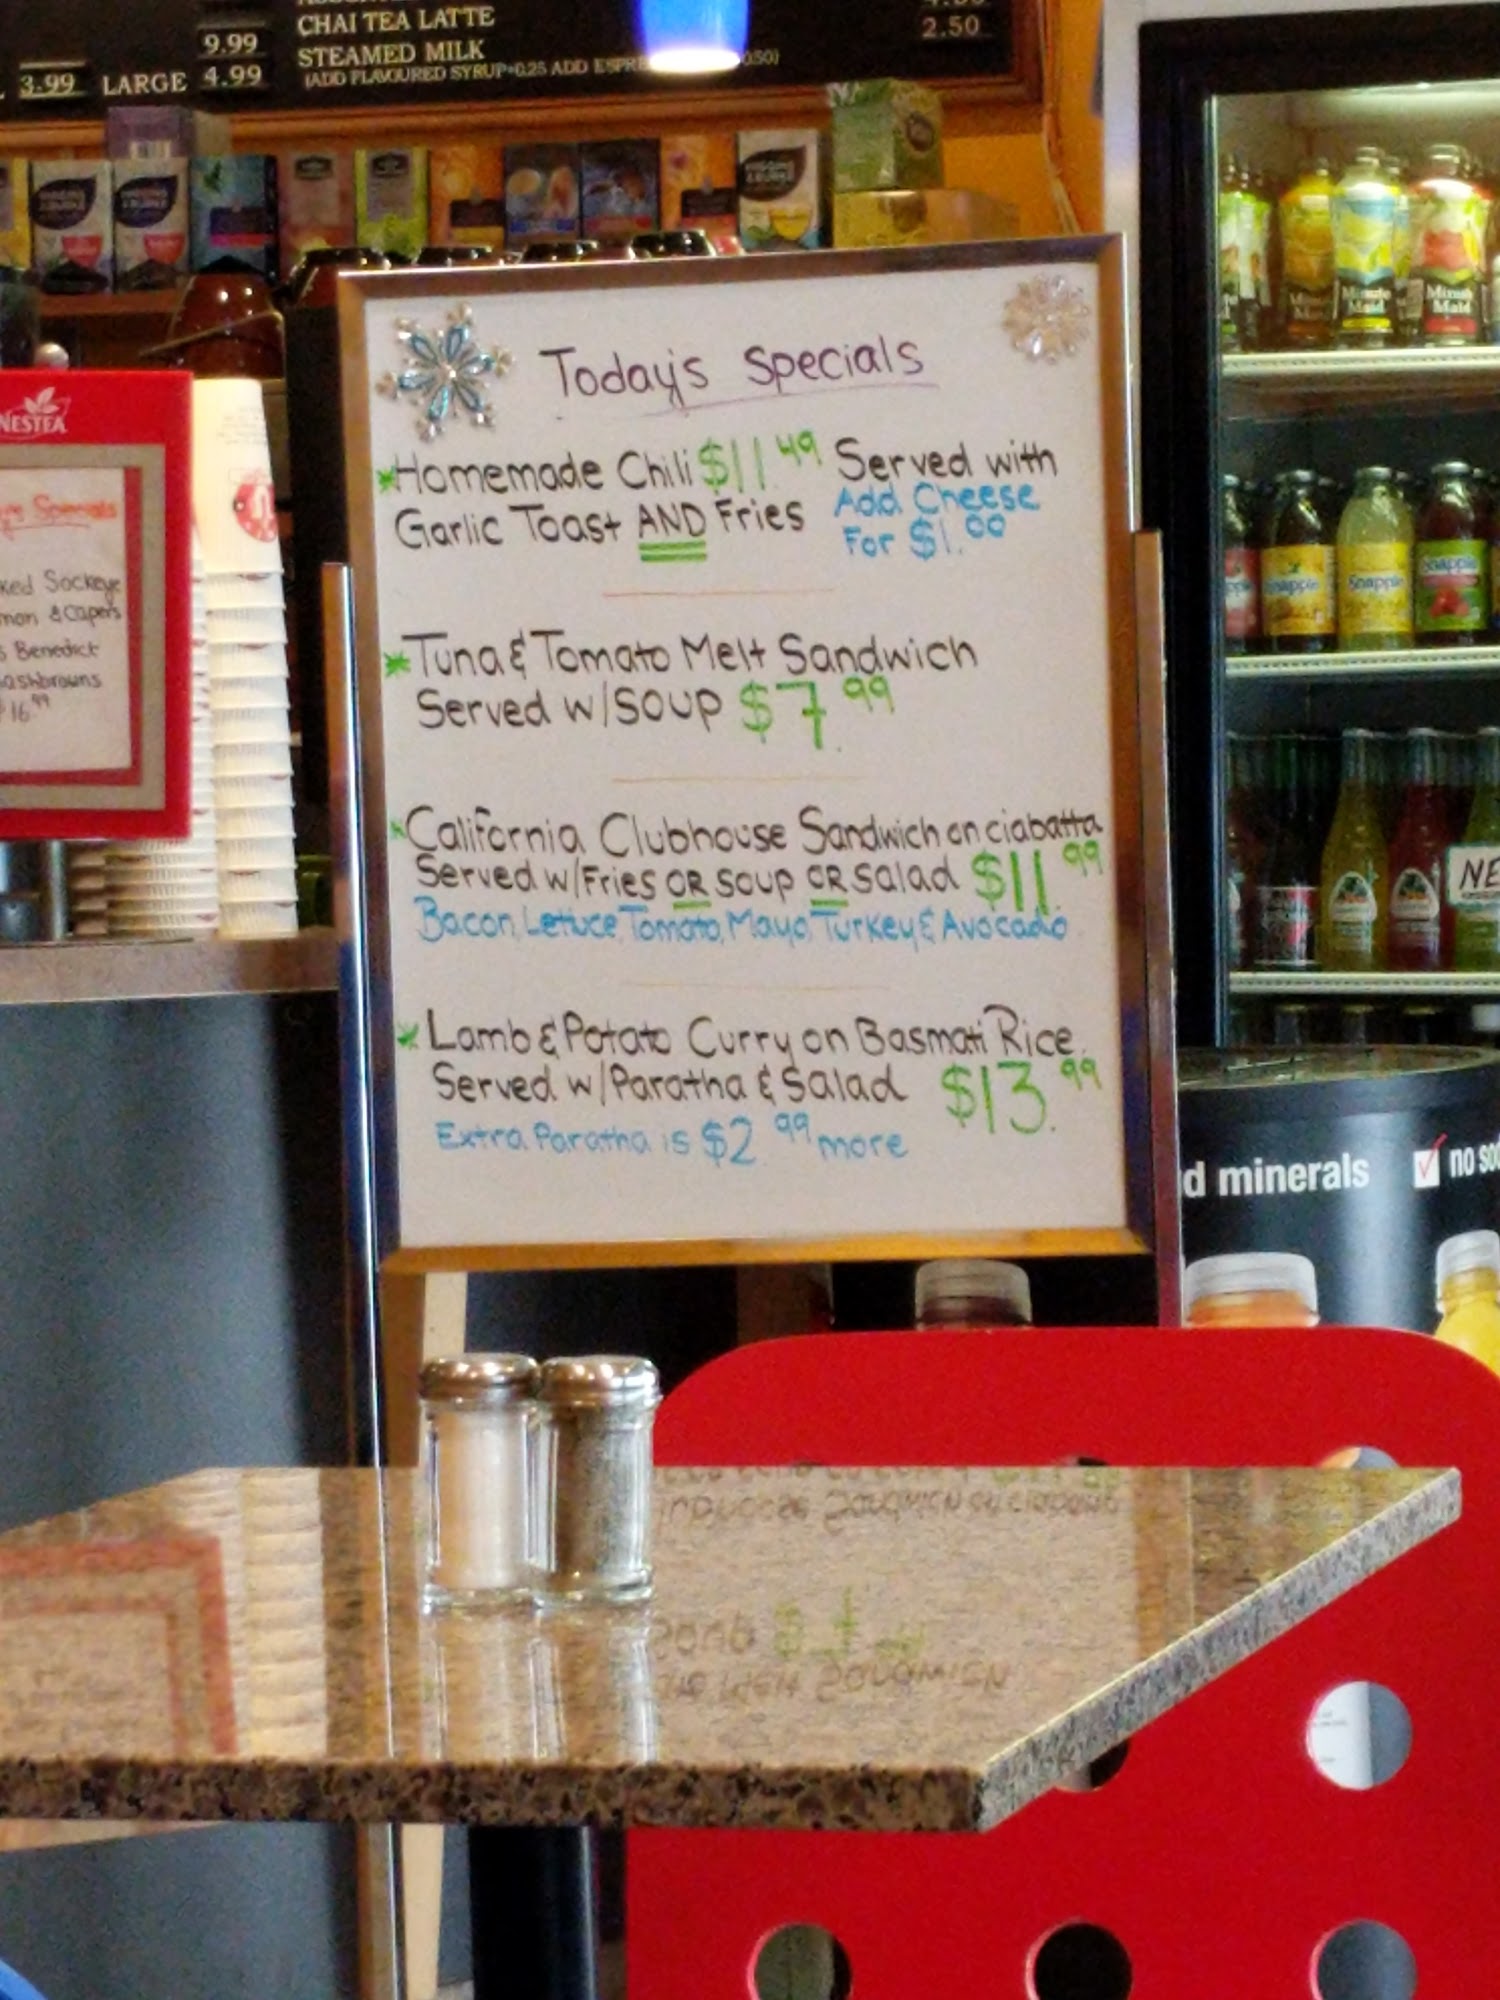 CHAI TEA LATTE
9.99
STEAMED MILK
2.50
3.99 LARGE 4.99
(ADD FLAVOURED SYRUP+0.25 ADD
NESTEA
Specials
Sockeye
& Capers
Benedict
16.99
Today's Specials
Homemade Chili $11.49 Served with
Garlic Toast AND Fries
Add Cheese
For $1.00
Tuna & Tomato Melt Sandwich
Served w/Soup $7.99
California Clubhouse Sandwich on ciabatta
Served w/Fries OR Soup OR Salad $11.99
Bacon, Lettuce, Tomato, Mayo, Turkey & Avocado
Lamb & Potato Curry on Basmati Rice
Served w/Paratha & Salad $13.99
Extra Paratha is $2.99 more
Minute Maid
Minute Maid
Snapple
Snapple
Snapple
minerals
no